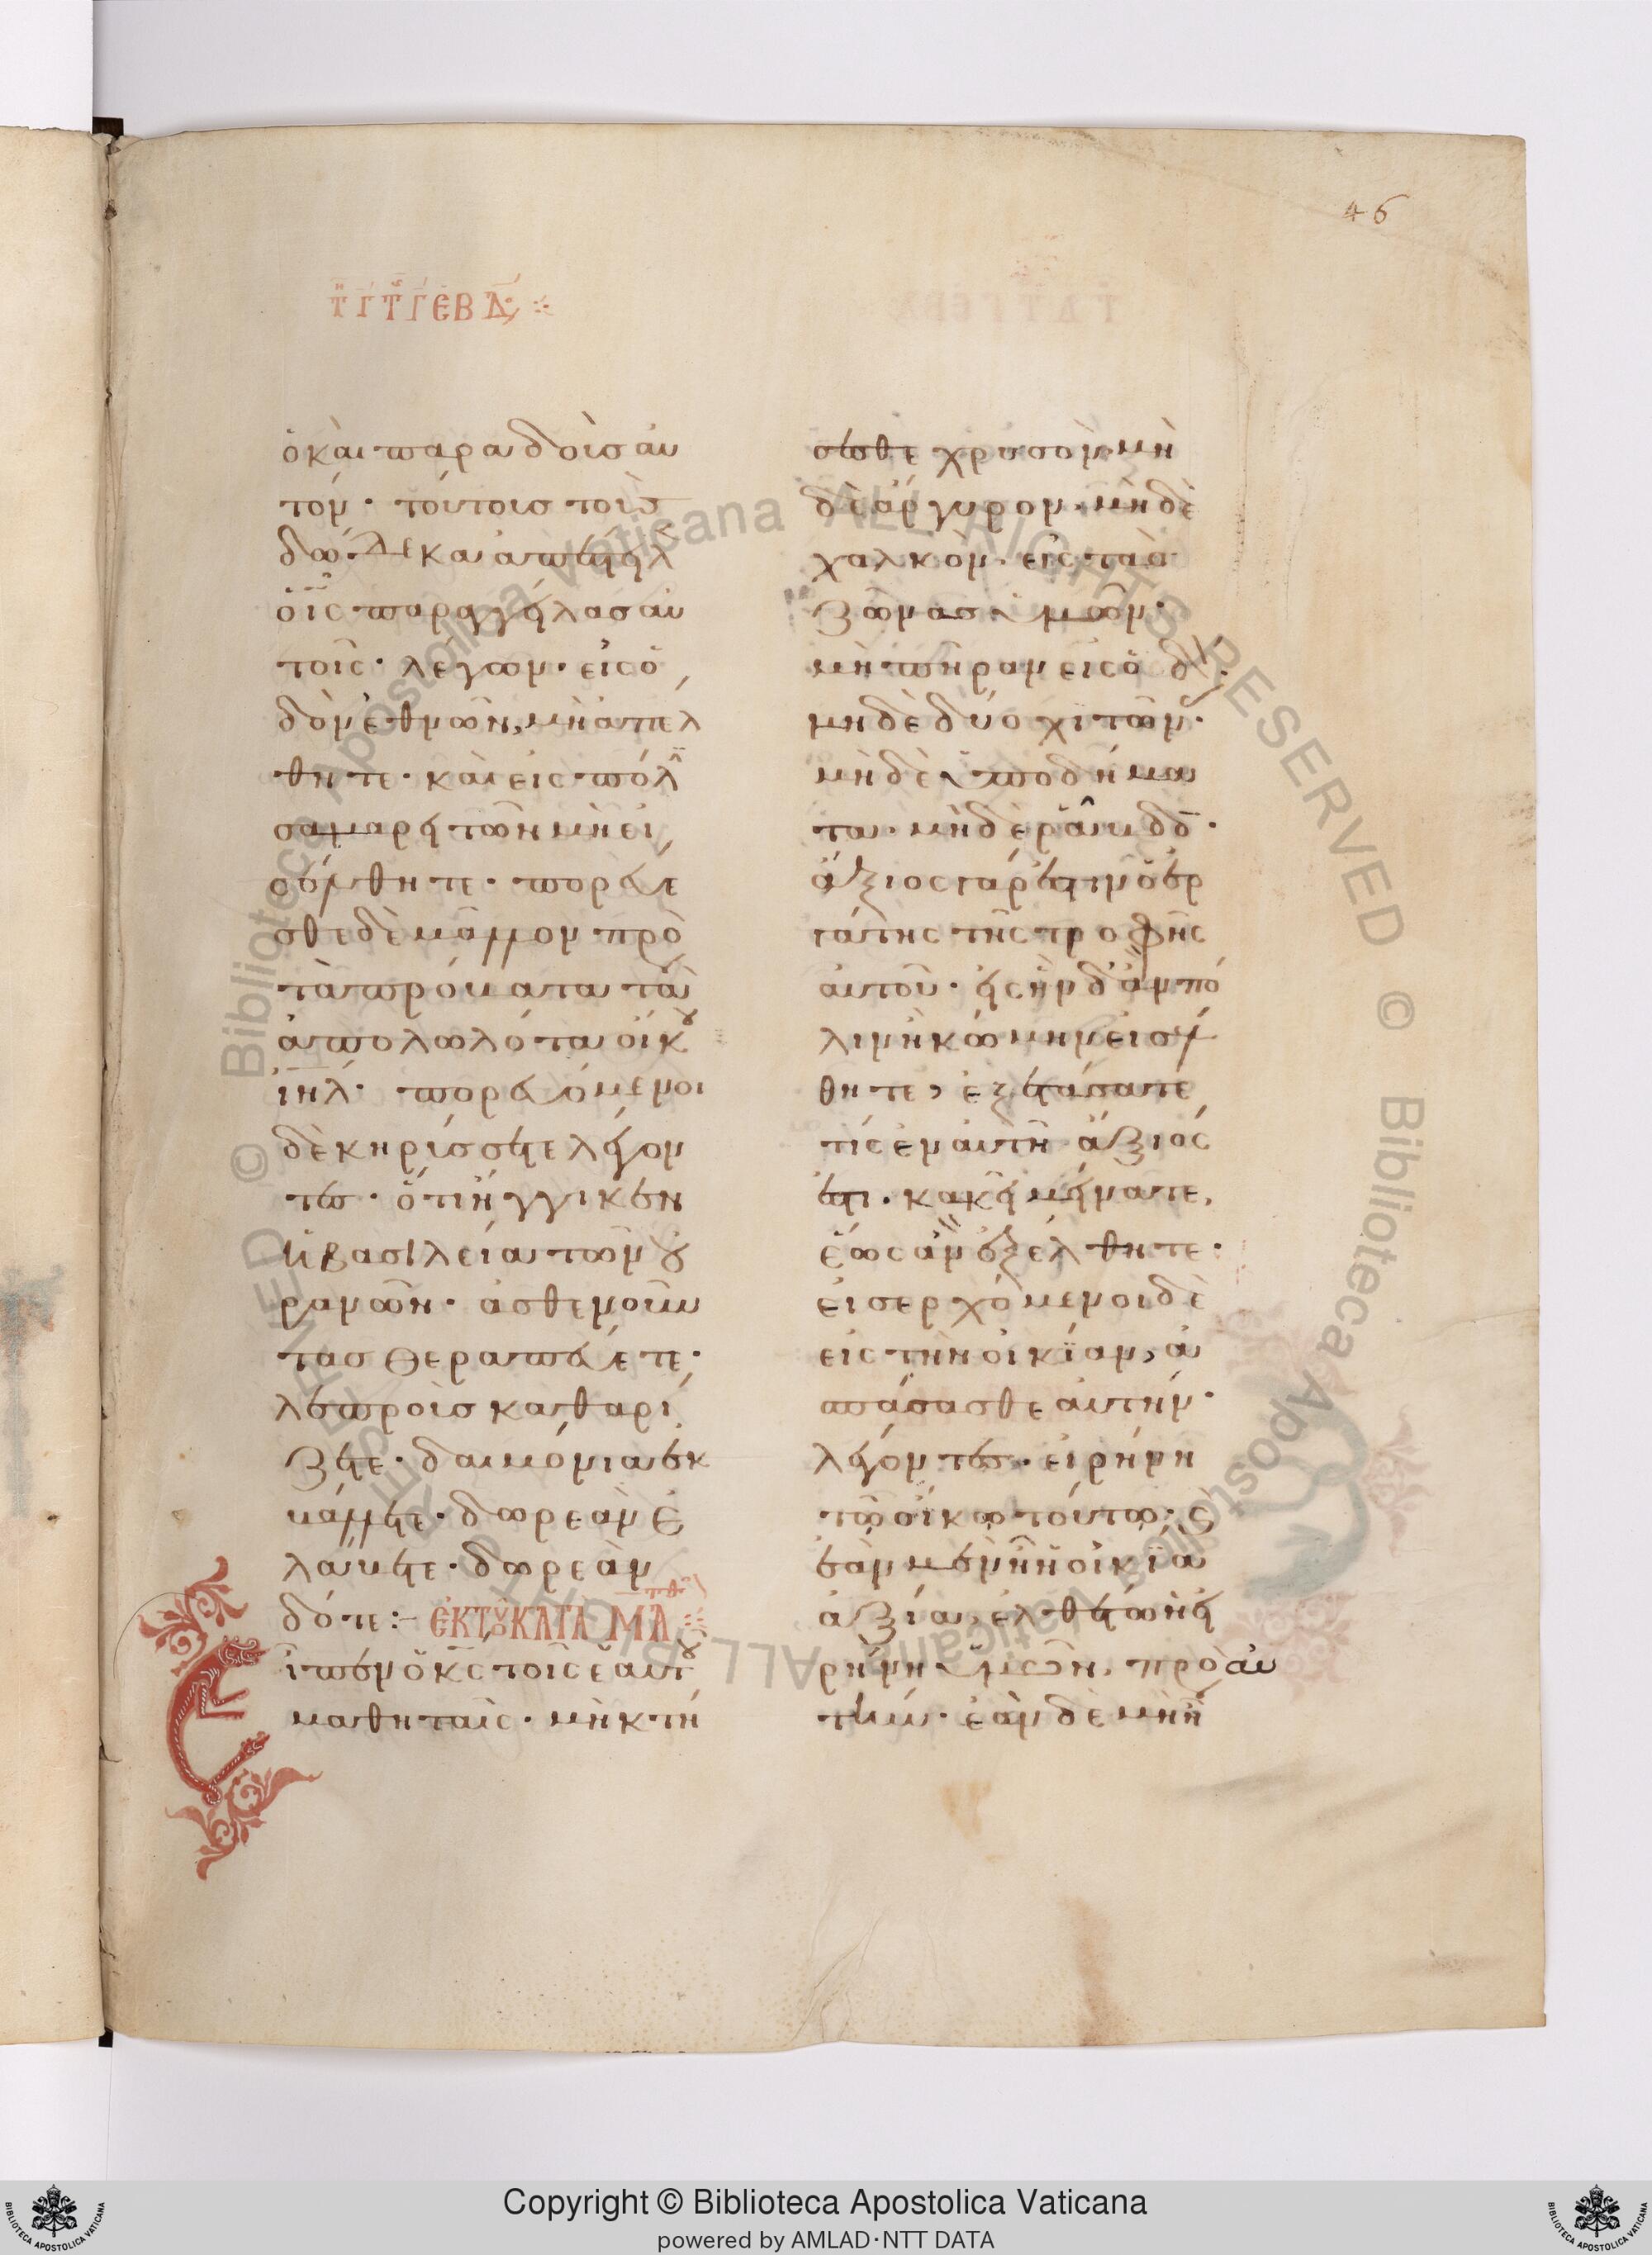 46
Τῆ Γ̄ Τ̄ Γ̄ ΕΒΔ
ὁ καὶ παραδοὺσ αὐ
τόν· τούτουσ τοὺσ
δώδεκα ἀπέστειλεν
ὁ ῑς παραγγείλασ αὐ
τοῖς· λέγων· εἰσ ὁ
δὸν ἐθνῶν, μὴ ἀπέλ
θητε· καὶ εἰς πόλιν
σαμαρειτῶν μὴ εἰ
σέλθητε· πορεύε
σθε δὲ μᾶλλον πρὸ
τὰ πρόβατα τὰ
ἀπολωλότα οἴκου
ι̅η̅λ̅· πορευόμενοι
δὲ κηρύσσετε λέγον
τες· ὅτι ἤγγικεν
ἡ βασιλεία τῶν οὐ
ρανῶν· ἀσθενοῦν
τασ θεραπεύετε·
λεπροὺσ καθαρί
ζετε· δαιμόνια ἐκ
βάλλετε· δωρεὰν ἐ
λάβετε· δωρεὰν
δότε:– ΕΚ ΤΟΥ ΚΑΤΑ ΜΑΤΘ
Εἶπεν ὁ κ̅ς τοῖς ἑαυτοῦ
μαθηταῖς· μὴ κτή
σησθε χρυσὸν· μὴ
δὲ ἄργυρον· μὴδὲ
χαλκὸν· εἰς τὰσ
ζώνασ ὑμῶν·
μὴ πήραν εἰς ὁδόν·
μηδὲ δύο χιτῶν·
μὴδὲ ὑποδήμα
τα· μὴδὲ ῥάβδο·
ἄξιος γὰρ ἐστιν ὁ ἐρ
γάτης τῆς τροφῆς
αὐτοῦ· εἰς ἣν δ' ἂν πό
λιν ἢ κώμην εἰσέλ
θητε, ἐξετάσατε
τίς ἐν αὐτῆ ἄξιός
ἐστι· κἀκεῖ μείνατε,
ἕως ἂν ἐξέλθητε·
εἰσερχόμενοι δὲ
εἰς τὴν οἰκίαν, ἀ
σπάσασθε αὐτήν·
λέγοντες· εἰρήνη
τῶ οἴκω τούτω· καὶ
ἐὰν μὲν ἦ ἡ οἰκία
ἀξία, ἐλθέτω ἡ εἰ
ρήνη ὑμῶν, πρὸσ αὐ
τήν· ἐὰν δὲ μὴ ἦ
Copyright © Biblioteca Apostolica Vaticana
powered by AMLAD·NTT DATA